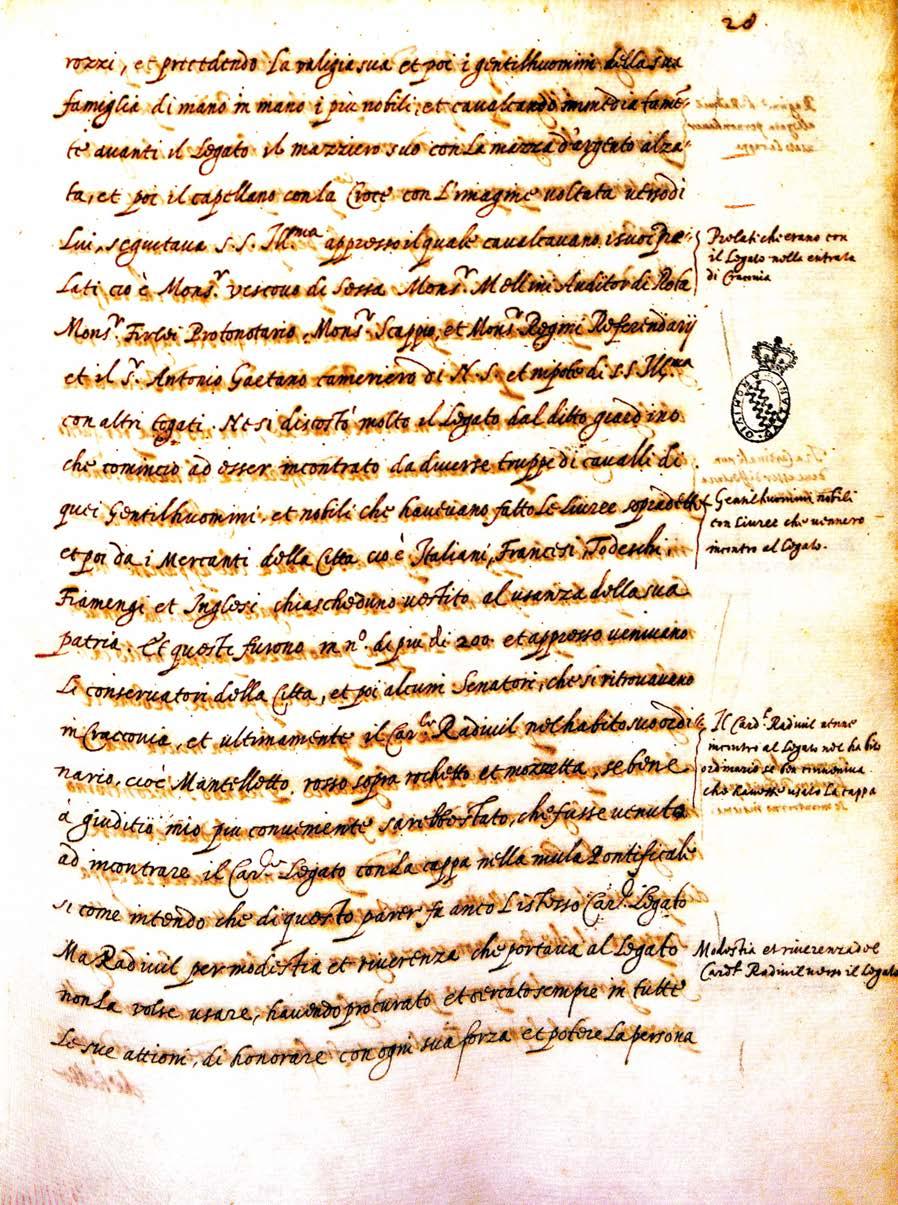 28
rozzi, et precedendo la valigia sua et poi i gentilhuomini della sua
famiglia di mano in mano i piu nobili, et cavalcando immediatame͂-
te avanti il Legato il mazziero suo con la mazza d'argento alza-
ta, et poi il capellano con la Croce con l'imagine voltata verso di
Lui, seguitava S.S. Ill.ma appresso il quale cavalcavano i suoi pre-
lati cio è Mons.r vescovo di Sessa Mons.r Mellini Auditor di Rota
Mons.r Protonotario, Mons.r Scappio, et Mons.r Regini Referendarij
et il S.r Antonio Gaetano cameriero di N.S. et nipote di S.S Ill.ma
con altri togati. Ne si discostò molto il Legato dal ditto giardino
che comincio ad esser incontrato da diverse truppe di cavalli di
quei Gentilhuomini, et nobili che havevano fatto le livree sopradette
et poi da i Mercanti della Citta cio è Italiani, Francesi, Todeschi,
Fiamengi et Inglesi chiascheduno vestito al usanza della sua
patria. Et questi furono in n.o di piu di 200 et appresso venivano
li conservatori della Citta, et poi alcuni Senatori, che si ritrovavano
in Craccovia, et ultimamente il Car.le Radivil nel habito suo ordi-
nario, cioè Mantelletto, rosso sopra rochetto et mozzetta, se bene
à giuditio mio piu conveniente sarebbe stato, che fusse venuto
ad incontrare il Car.le Legato con la cappa nella mula Pontificale
si come intendo che di questo parer fu anco l'istesso Car.le Legato
Ma Radivil per modistia et riverenza che portava al Legato
non la volse usare, havendo procurato et cercato sempre in tutte
le sue attioni, di honorare con ogni sua forza et potere la persona
Prelati che erano con
il Legato nella entrata
di Cracovia
Gentilhuomini nobili
con livree che vennero
incontro al Legato.
Il Card.l Radivil venne
incontro al Legato nel habito
ordinario se ben conveniva
che havesse usato la cappa
Modestia et riverenza del
Card.l Radivil verso il Legato